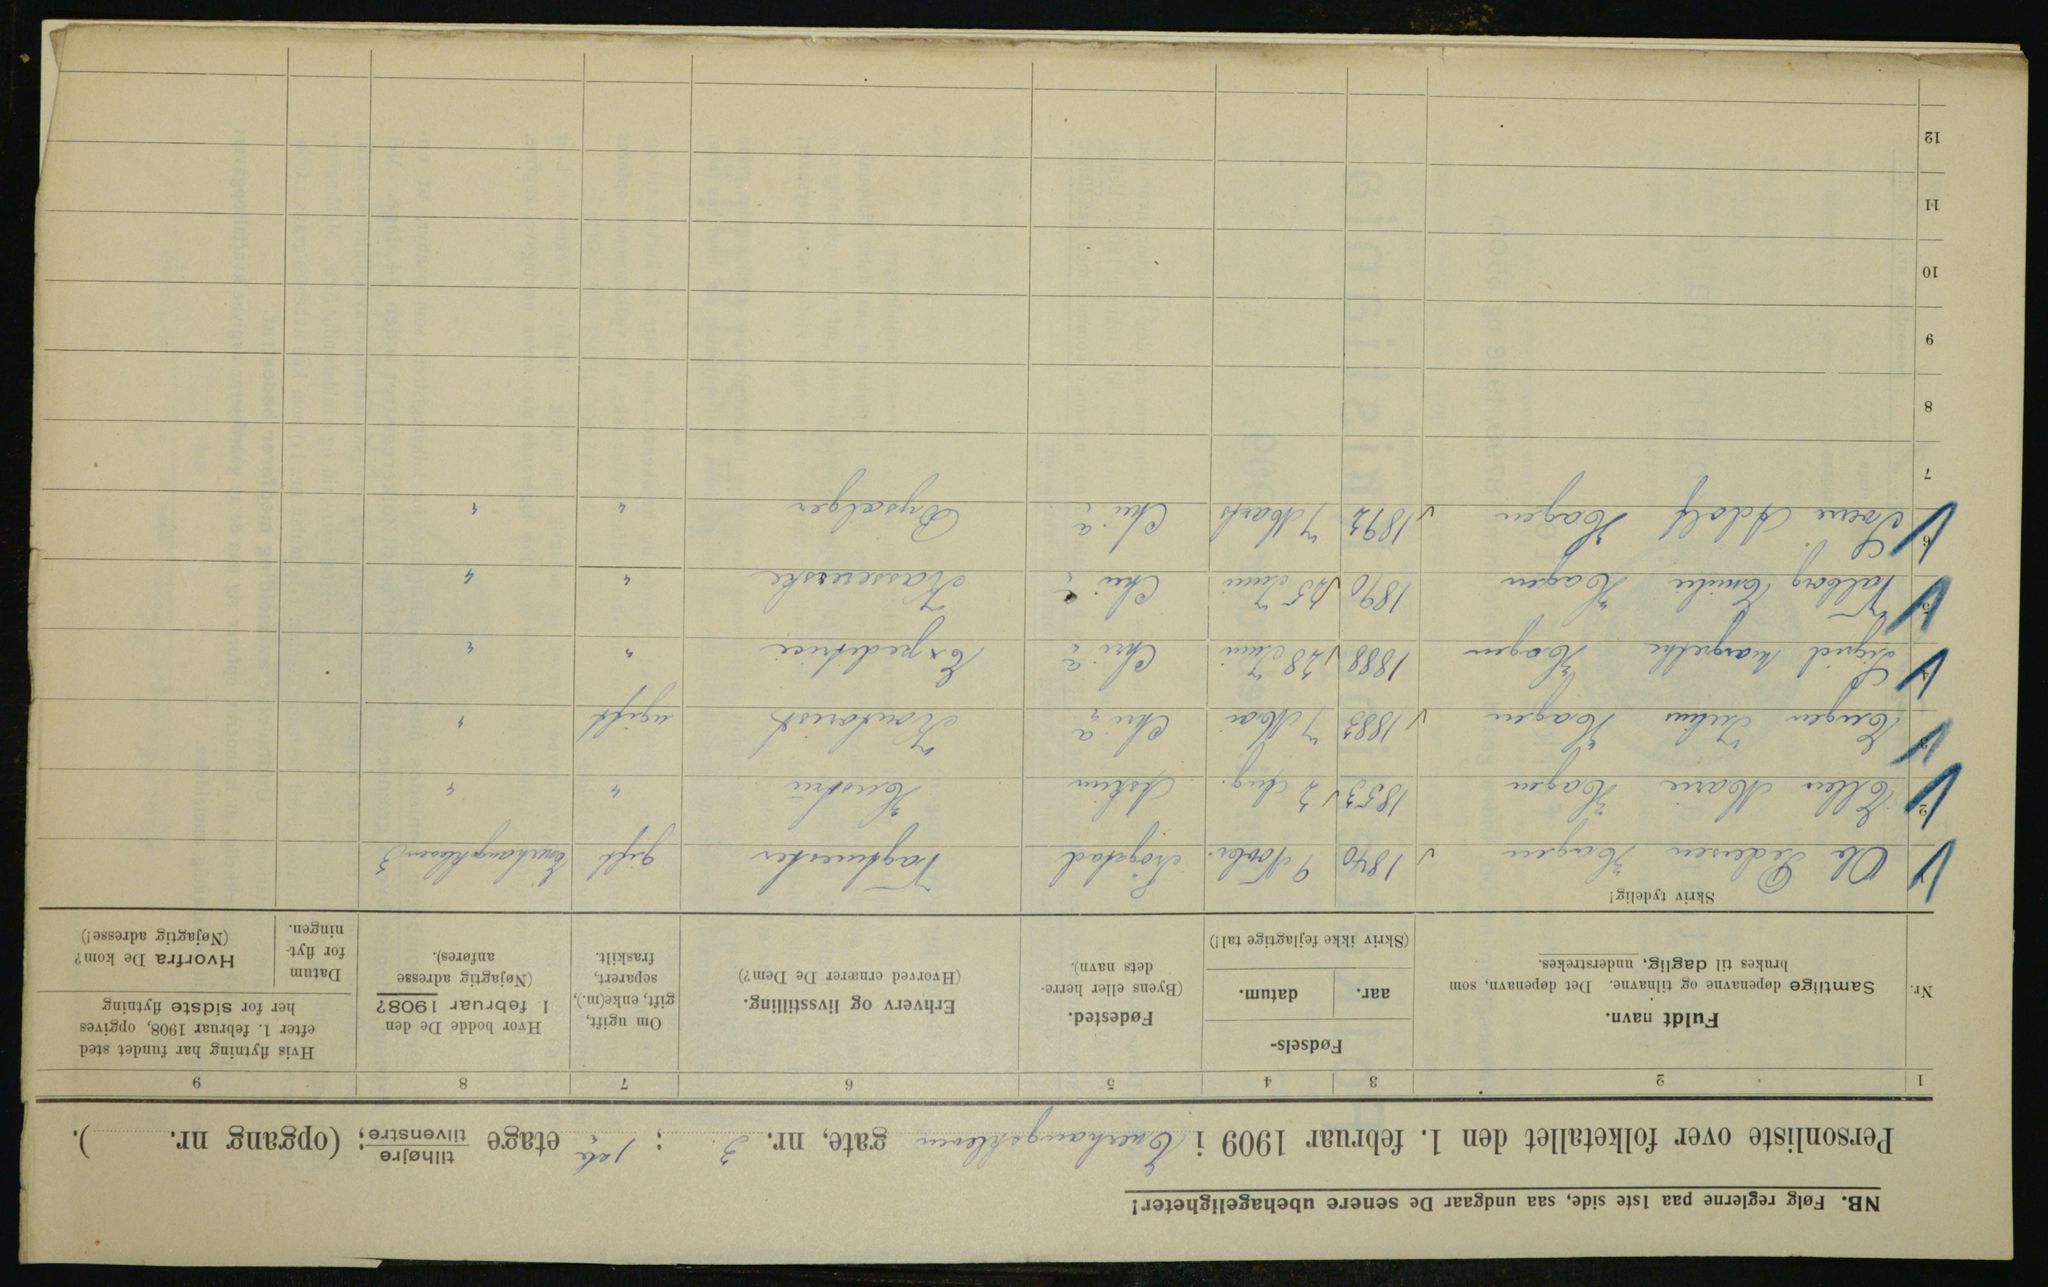 NB. Følg reglerne paa 1ste side, saa undgaar De senere ubehageligheter!
Personliste over folketallet den 1. februar 1909 i Enerhaugskleven gate, nr. 3 ; 1ste etage tilhøjre tilvenstre; (opgang nr. ).
1 2 3 4 5 6 7 8 9
Nr. Fuldt navn. Samtlige døpenavne og tilnavne. Det døpenavn, som brukes til daglig, understrekes.
Fødsels- aar. datum. (Skriv ikke fejlagtige tal!)
Fødested. (Byens eller herredets navn).
Erhverv og livsstilling. (Hvorved ernærer De Dem?)
Om ugift, gift, enke(m.), separert, fraskilt.
Hvor bodde De den 1 februar 1908? (Nøjagtig adresse anføres).
Hvis flytning har fundet sted efter 1. februar 1908, opgives her for sidste flytning
Datum for flytningen. Hvorfra De kom? (Nøjagtig adresse!)
Skriv tydelig!
1 Ole Pedersen Hagen 1840 9 Novbr. Trøgstad Vagtmester gift Enerhaugskleven 3
2 Ellen Marie Hagen 1853 2 Aug. Askim Hustru " "
3 Eugen Julius Hagen 1883 7 Mai Chr.a Kontorist ugift "
4 Sigrid Margrethe Hagen 1888 28 Juni Chr.a Expeditrice " "
5 Valborg Emilie Hagen 1890 25 Juni Chr.a Kassererske " "
6 Sverre Adolf Hagen 1892 7 Marts Chr.a Bysælger " "
7
8
9
10
11
12